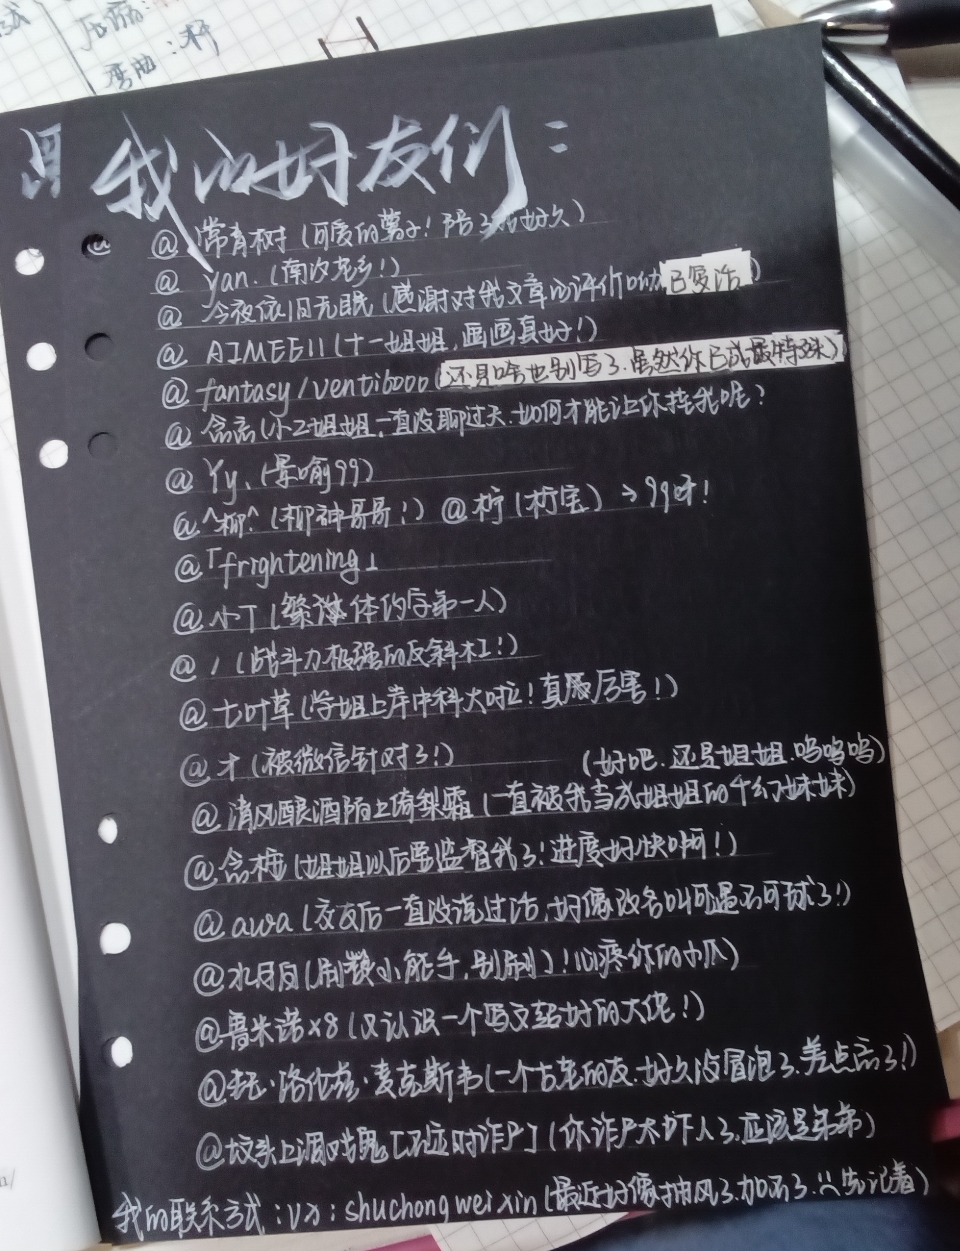 压缩：
弯曲：杆
我的好友们：
@ 常青树（可爱的薯子！陪了我好久）
@ yan.（南汝老乡！）
@ 今夜依旧无眠（感谢对我文章的评价 已复活）
@ AIMEE11（十一姐姐，画画真好！）
@ fantasy/venti6000（还是啥也别写了，虽然你已成最特殊）
@ 念念（小二姐姐，一直没聊过天，如何才能让你理我呢？
@ Yy.（景喻99）
@ ^柳^（柳神哥哥！） @ 析（析宝）→99呀！
@「frightening」
@ 小丁（繁体的字第一人）
@ /（战斗力极强的反斜杠！）
@ 七叶草（学姐上岸中科大啦！真厉害！）
@ 才（被微信针对了！）
（好吧，还是姐姐，呜呜呜）
@ 清风酿酒陌上绮梨霜（一直被我当成姐姐的 妹妹）
@ 念 （姐姐以后要监督我了！进度好快啊！）
@ awa（交友后一直没说过话，好像改名叫可遇不可球了！）
@ 水月 （刷赞小能手，别刷了！心疼你的小爪）
@ 鲁米诺×8（又认识一个写文超好的大佬！）
@ 托·洛伦兹·麦克斯韦（一个古老的友，好久没冒泡了，差点忘了！）
@ 坟头上调戏鬼［不应时诈尸］（你诈尸太吓人了，应该是弟弟）
我的联系方式：vx：shuchongweixin（最近好像抽风了，加不了，先记着）